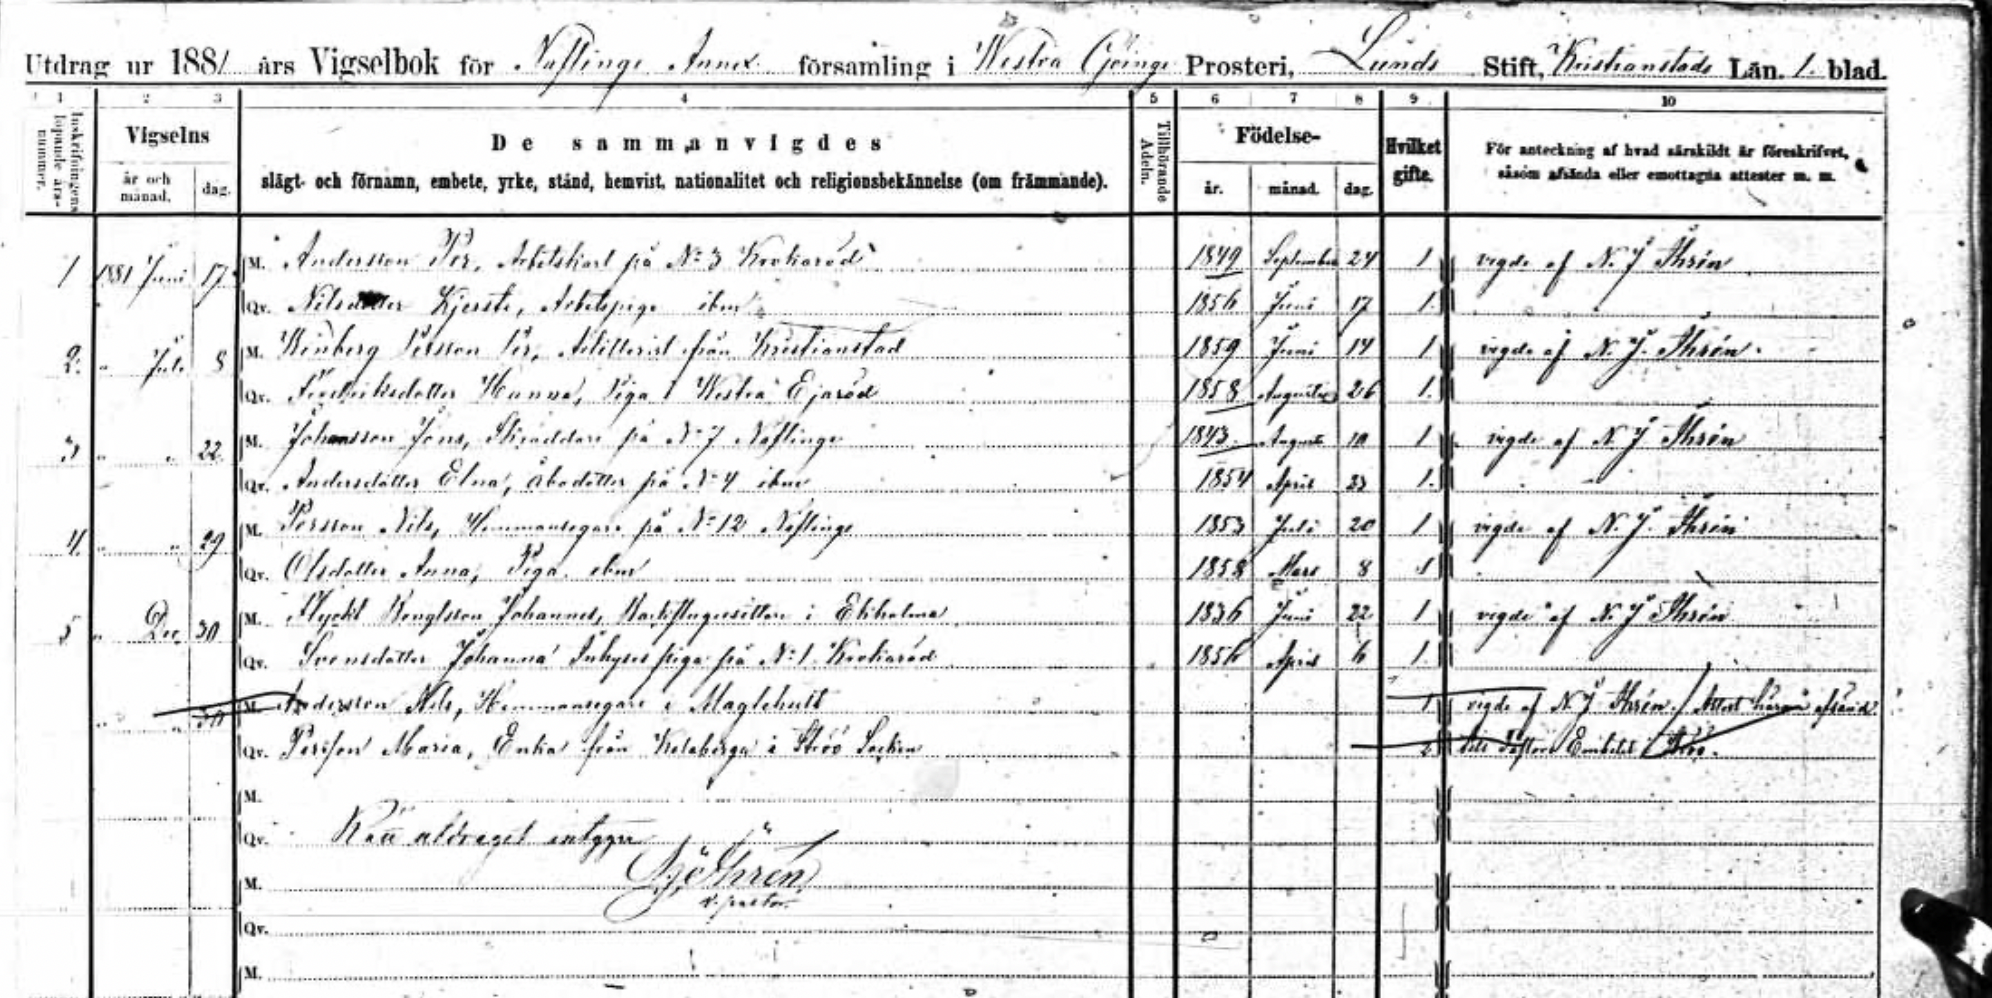 Utdrag ur 1881 års Vigselbok för Näflinge Annex församling i Westra Göinge Prosteri, Lunds Stift, Kristianstads Län. 1. blad.
1 2 3 4 5 6 7 8 9 10
Inskrifningens löpande års-nummer. Vigselns De sammanvigdes Tillhörande Adeln. Födelse- Hvilket gifte. För anteckning af hvad särskildt är föreskrifvet, såsom afsända eller emottagna attester m. m.
år och månad. dag. slägt- och förnamn, embete, yrke, stånd, hemvist, nationalitet och religionsbekännelse (om främmande). år. månad. dag.
1 1881 Juni 17 M. Andersson Per, Arbetskarl på No 3 Krokaröd 1849 September 24 1 vigde af N. J. Threin
Qv. Nilsdotter Kjersti, Arbetspiga ibm 1856 Juni 17 1.
2. " Juli 8 M. Persson Per, Artillerist från Kristianstad 1859 Juni 14 1 vigde af N. J. Thrén.
Qv. Fredriksdotter Hanna, Piga i Westra Ejaröd 1858 Augusti 26 1.
3 " " 22 M. Johansson Jöns, Skräddare på No 7 Näflinge 1843 Augusti 10 1 vigde af N. J. Thrén
Qv. Andersdotter Elna, åbodotter på No 4 ibm 1854 April 23 1.
4. " " 29 M. Persson Nils, Hemmansegare på No 12 Näflinge 1853 Juli 20 1 vigde af N. J. Thrén
Qv. Olsdotter Anna, Piga ibm 1858 Mars 8 1
5 " Dec. 30 M. Bengtsson Johannes, i Ekholma 1836 Juni 22 1 vigde af N. J. Thrén
Qv. Svensdotter Johanna Inhyses piga på No 1. Krokaröd 1856 April 6 1.
" " 30 M. Andersson Nils, Hemmansegare i Maglehult 1 vigde af N. J. Thrén. / Attest härom afsänd
Qv. Persson Maria, Enka från iStröö Socken 2. till Pastors Embetet i Ströö.
M.
Qv. Rätt utdraget intygar
M. Thrén
v. pastor.
Qv.
M.